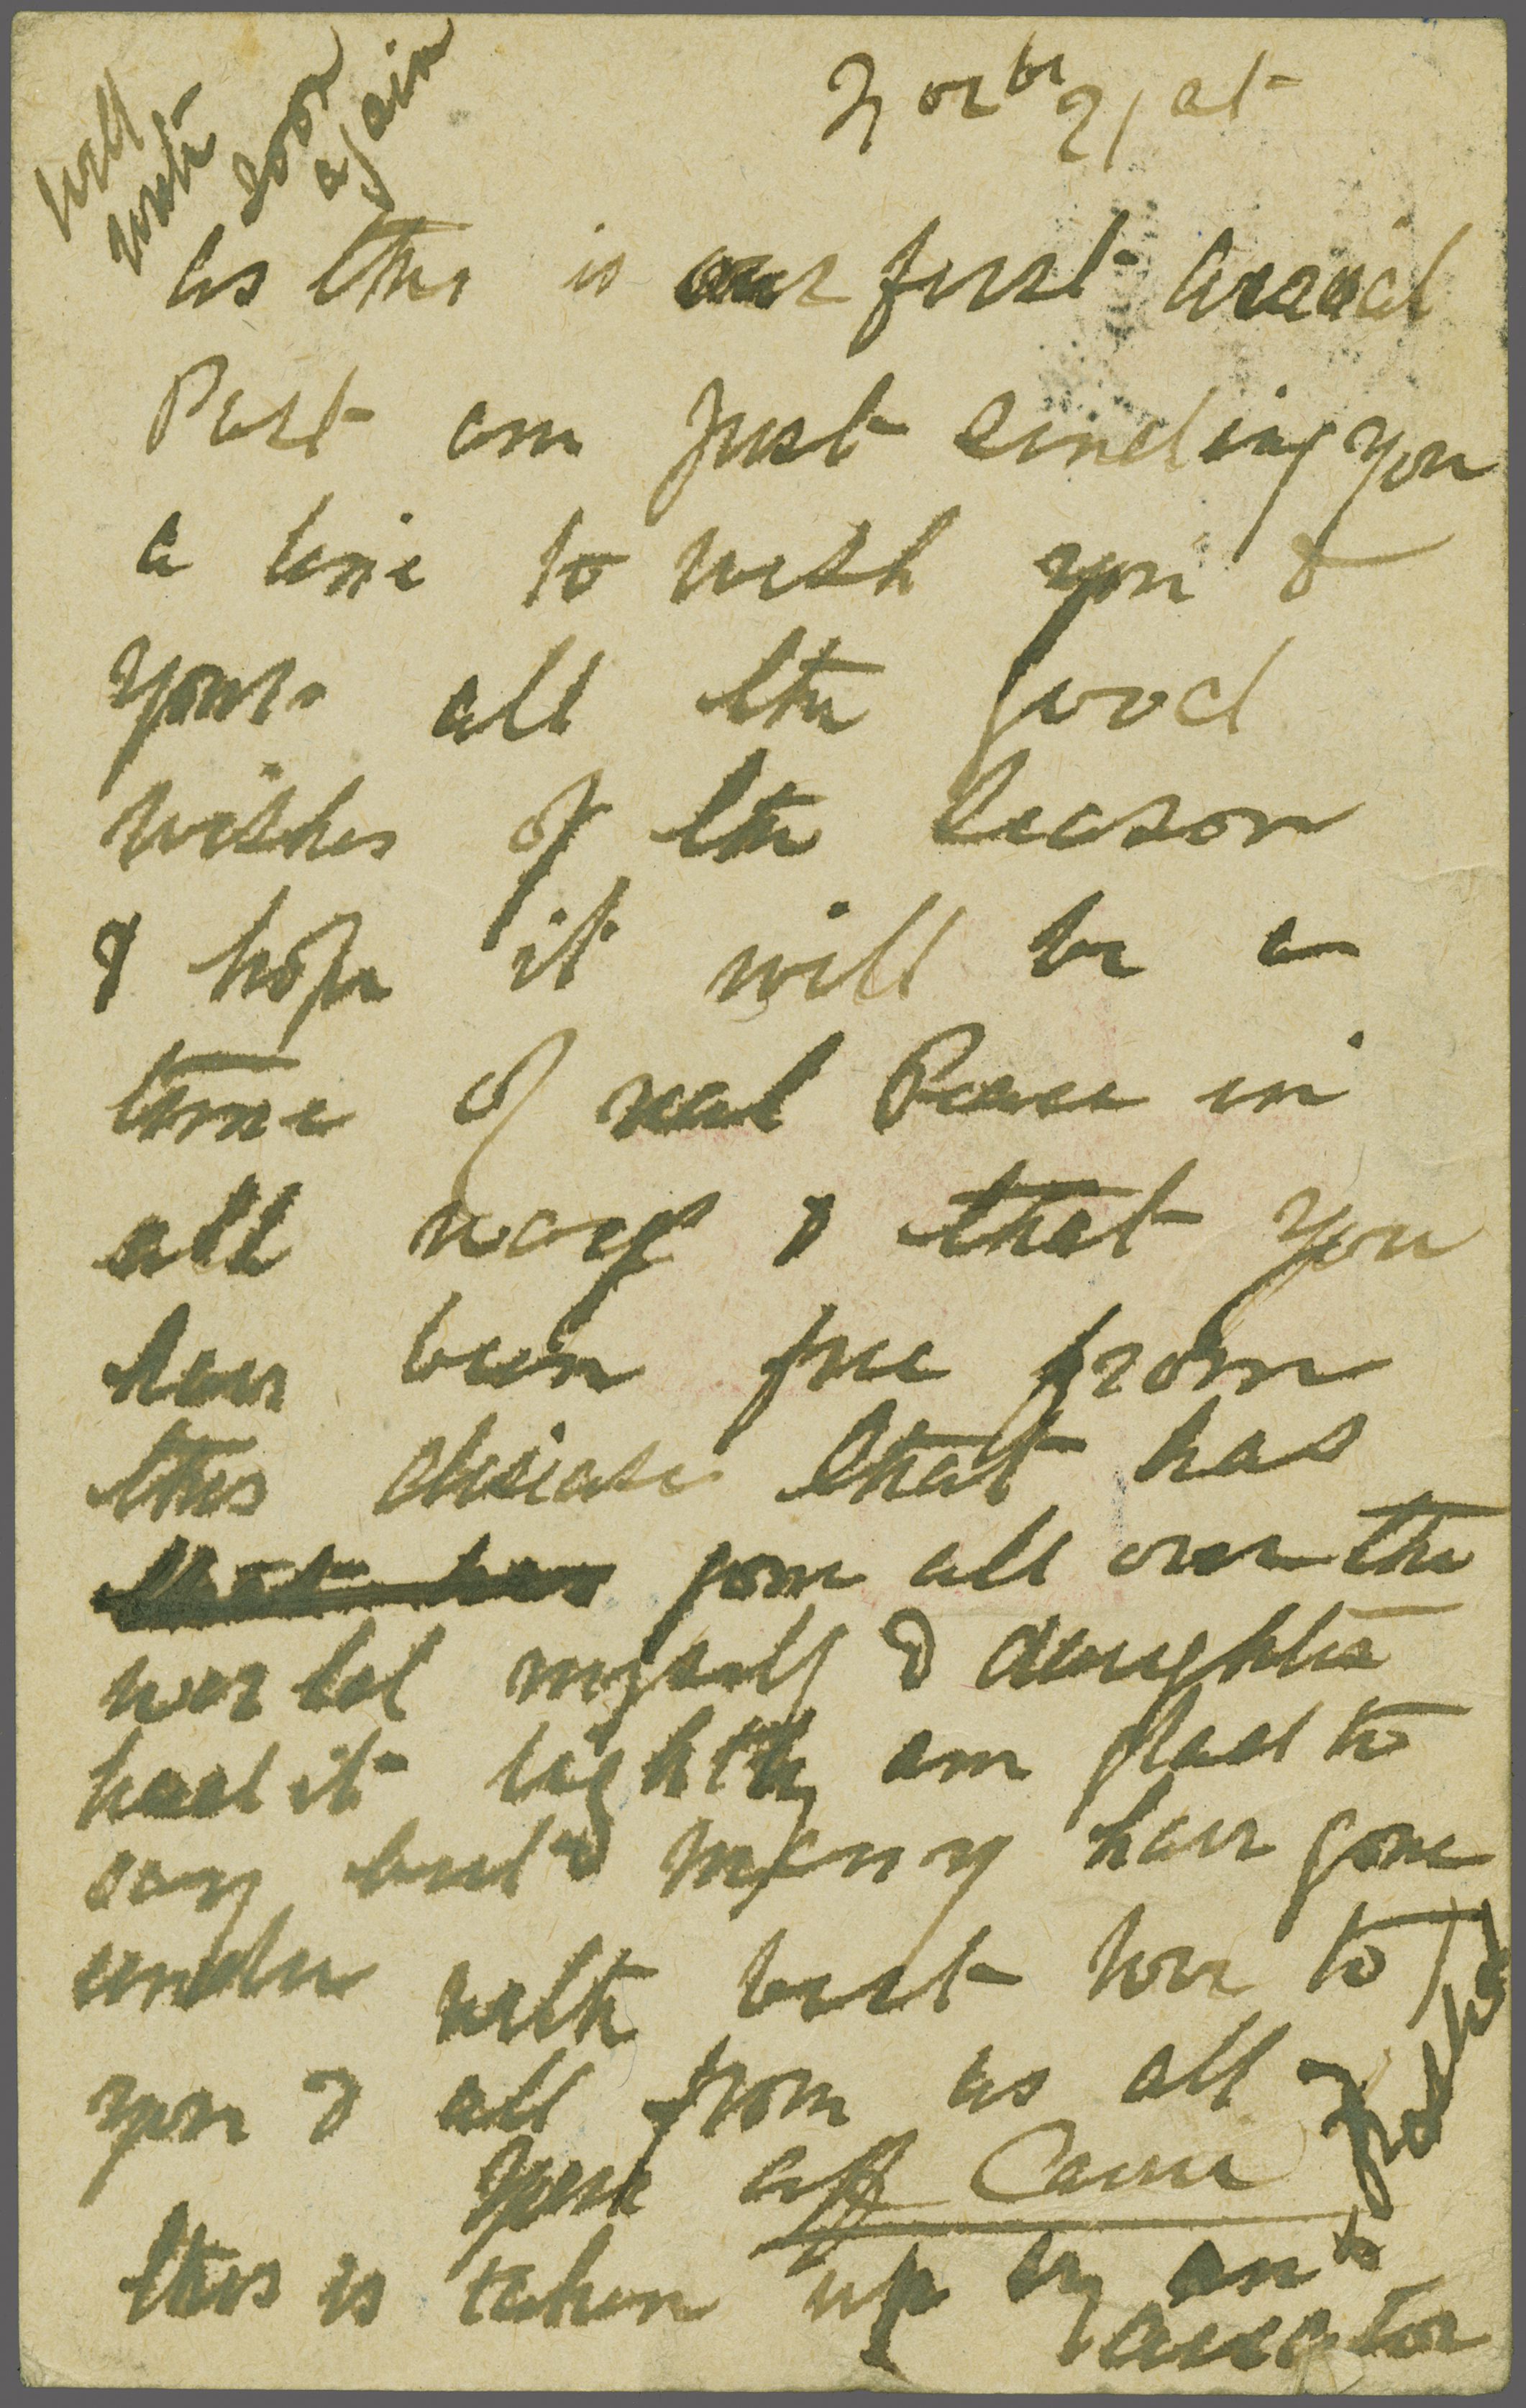 Will
write
soon
again
Novbr 21st
As this is our first Aerial
Post am just sending you
a line to wish you &
yours all the good
wishes of the Season
& hope it will be a
time of real Peace in
all ways & that you
have been free from
this disease that has
that has gone all over the
world myself & daughter
had it lightly am glad to
say but many have gone
under with best love to
you & all from us all
your aff
this is taken up by an
aviator